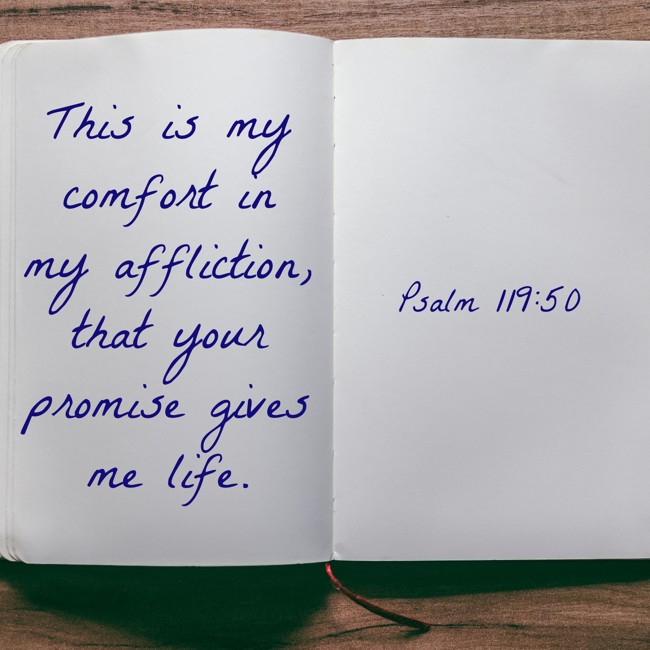 This is my
comfort in
my affliction,
that your
promise gives
me life.
Psalm 119:50